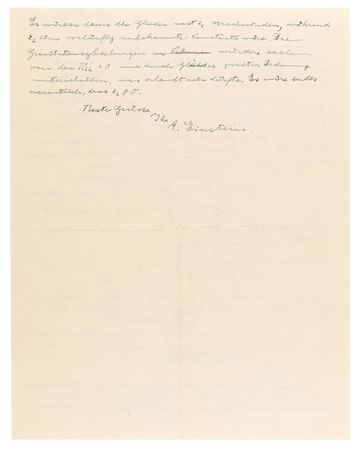 Es würden dann die Glieder mit z₁ verschwinden, während
z₂ eine vorläufig unbekannte Konstante wäre. Die
Gravitationsgleichungen im Vakuum würden sich
von den R = 0 nur durch Glieder zweiter Ordnung
unterscheiden, was erlaubt sein dürfte. Es wäre
wesentlich, dass z₂ ≠ 0.
Beste Grüsse
Ihr
A. Einstein.